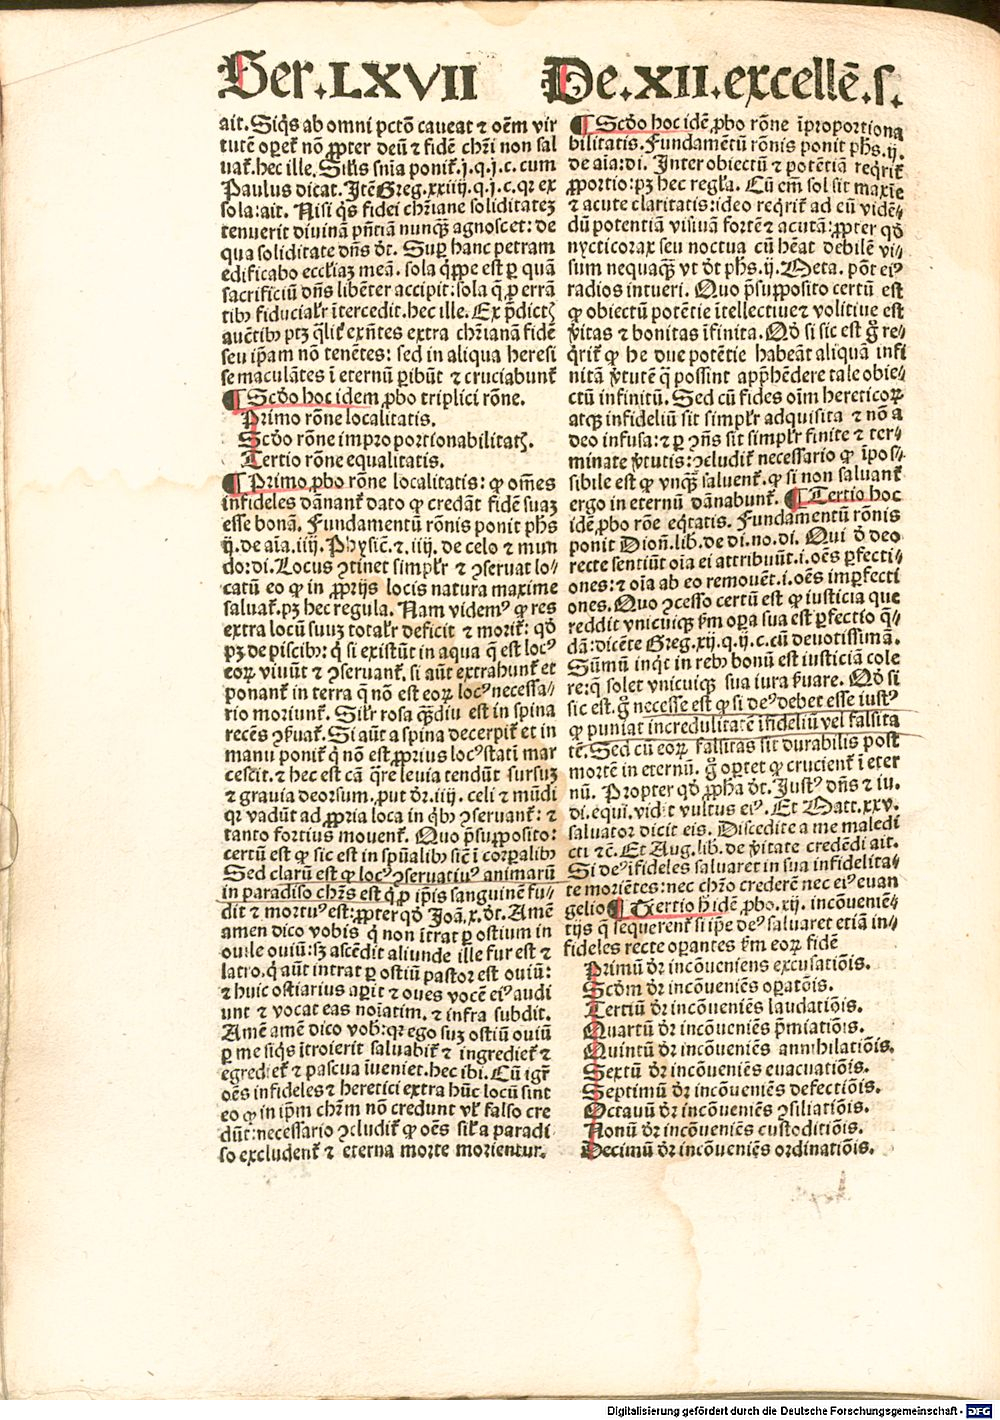 Ser. LXVII De. XII. excellē. s.
ait. Siq̄s ab omni pctō caueat ⁊ oēm vir
tutē operet̄ nō ꝓpter deū ⁊ fidē chr̄i non sal
uat̄. hec ille. Sil̄is sn̄ia ponit̄. j. q. j. c. cum
Paulus dicat. Itē Greg. xxiiij. q. j. c. qr ex
sola: ait. Nisi q̄s fidei chr̄iane soliditateꝫ
tenuerit diuinā pn̄tiā nunqꝫ agnoscet: de
qua soliditate dn̄s dt̄. Suꝑ hanc petram
edificabo eccl̄iaꝫ meā. sola q̄ppe est ꝑ quā
sacrificiū dn̄s libēter accipit: sola q̄ ꝓ errā
tibꝰ fiducialr̄ ītercedit. hec ille. Ex p̄dictꝭ
auc̄tibꝰ ptꝫ q̄lit̄ exn̄tes extra chr̄ianā fidē
seu ip̄am nō tenētes: sed in aliqua heresi
se maculātes ī eternū ꝑibūt ⁊ cruciabunt̄
¶ Scd̄o hoc idem ꝓbo triplici rōne.
Primo rōne localitatis.
Scd̄o rōne improportionabilitatꝭ.
Tertio rōne equalitatis.
¶ Primo ꝓbo rōne localitatis: ꝙ om̄es
infideles dānant̄ dato ꝙ credāt fidē suaꝫ
esse bonā. Fundamentū rōnis ponit ph̄s
ij. de aīa. iiij. Physic̄. ⁊. iiij. de celo ⁊ mun
do: di. Locus ꝯtinet simpl̄r ⁊ ꝯseruat lo⸗
catū eo ꝙ in ꝓprijs locis natura maxime
saluat̄. pꝫ hec regula. Nam videmꝰ ꝙ res
extra locū suuꝫ totalr̄ deficit ⁊ morit̄: qd̄
pꝫ de piscibꝰ: q̄ si existūt in aqua q̄ est locꝰ
eoꝝ viuūt ⁊ ꝯseruant̄. si aūt extrahunt̄ et
ponant̄ in terra q̄ nō est eoꝝ locꝰ necessa⸗
rio moriunt̄. Sil̄r rosa qꝫdiu est in spina
recēs ꝯẜuat̄. Si aūt a spina decerpit̄ et in
manu ponit̄ q̄ nō est ꝓprius locꝰ statī mar
cescit. ⁊ hec est cā q̄re leuia tendūt sursuꝫ
⁊ grauia deorsum. put dr̄. iiij. celi ⁊ mūdi
qr vadūt ad ꝓpria loca in q̄bꝰ ꝯseruant̄: ⁊
tanto fortius mouent̄. Quo p̄supposito:
certū est ꝙ sic est in spūalibꝰ sic̄ ī corꝑalibꝰ
Sed clarū est ꝙ locꝰ ꝯseruatiuꝰ animarū
in paradiso chr̄s est q̄ ꝓ ip̄is sanguinē fu⸗
dit ⁊ mortuꝰ est: ꝓpter qd̄ Joā. x. dt̄. Amē
amen dico vobis q̄ non ītrat ꝑ ostium in
ouile ouiū: sꝫ ascēdit aliunde ille fur est ⁊
latro. q̄ aūt intrat ꝑ ostiū pastor est ouiū:
⁊ huic ostiarius aꝑit ⁊ oues vocē eiꝰ audi
unt ⁊ vocat eas noīatim. ⁊ infra subdit.
Amē amē dico vob̄: qr ego suꝫ ostiū ouiū
ꝑ me siq̄s ītroierit saluabit̄ ⁊ ingrediet̄ ⁊
egrediet̄ ⁊ pascua īueniet. hec ibi. Cū igr̄
oēs infideles ⁊ heretici extra hūc locū sint
eo ꝙ in ip̄m chr̄m nō credunt vl̄ falso cre
dūt: necessario ꝯcludit̄ ꝙ oēs sil̄ a paradi
so excludent̄ ⁊ eterna morte morientur.
¶ Scd̄o hoc idē ꝓbo rōne īproportiona
bilitatis. Fundamētū rōnis ponit ph̄s. ij.
de aīa: di. Inter obiectū ⁊ potētiā req̄rit̄
ꝓportio: pꝫ hec regl̄a. Cū em̄ sol sit maxīe
⁊ acute claritatis: ideo req̄rit̄ ad eū vidē⸗
dū potentiā visiuā fortē ⁊ acutā: ꝓpter qd̄
nycticorax seu noctua cū hēat debilē vi⸗
sum nequaqꝫ vt dt̄ ph̄s. ij. Meta. pōt eiꝰ
radios intueri. Quo p̄supposito certū est
ꝙ obiectū potētie ītellectiue ⁊ volitiue est
v̄itas ⁊ bonitas īfinita. Qd̄ si sic est gͦ re⸗
q̄rit̄ ꝙ he due potētie habeāt aliquā infi
nitā v̄tutē q̄ possint app̄hēdere tale obie⸗
ctū infinitū. Sed cū fides oīm hereticoꝝ
atqꝫ infideliū sit simpl̄r adquisita ⁊ nō a
deo infusa: ⁊ ꝑ ꝯn̄s sit simpl̄r finite ⁊ ter⸗
minate v̄tutis: ꝯcludit̄ necessario ꝙ īpos⸗
sibile est ꝙ vnqꝫ saluent̄. ꝙ si non saluant̄
ergo in eternū dānabunt̄. ¶ Tertio hoc
idē ꝓbo rōe eq̄tatis. Fundamentū rōnis
ponit Dion̄. lib. de di. no. di. Qui d̄ deo
recte sentiūt oīa ei attribuūt. i. oēs ꝑfecti⸗
ones: ⁊ oīa ab eo remouēt. i. oēs imꝑfecti
ones. Quo ꝯcesso certū est ꝙ iusticia que
reddit vnicuiqꝫ ẜm oꝑa sua est ꝑfectio q̄⸗
dā: dicēte Greg. xij. q. ij. c. cū deuotissimā.
Sūmū inqt̄ in rebꝰ bonū est iusticiā cole
re: q̄ solet vnicuiqꝫ sua iura ẜuare. Qd̄ si
sic est. gͦ necesse est ꝙ si deꝰ debet esse iustꝰ
ꝙ puniat incredulitatē īfideliū vel falsita
tē. Sed cū eoꝝ falsitas sit durabilis post
mortē in eternū. gͦ oꝑtet ꝙ crucient̄ ī eter
nū. Propter qd̄ ꝓph̄a dt̄. Justꝰ dn̄s ⁊ iu.
di. equi. vidit vultus eiꝰ. Et Matt. xxv.
saluator dicit eis. Discedite a me maledi
cti ⁊c̄. Et Aug. lib. de v̄itate credēdi ait.
Si deꝰ īfideles saluaret in sua infidelita⸗
te moriētes: nec chr̄o crederē nec eiꝰ euan
gelio ¶ Tertio h̄ idē ꝓbo. xij. incōueniē⸗
tijs q̄ sequerent̄ si ip̄e deꝰ saluaret etiā in⸗
fideles recte oꝑantes ẜm eoꝝ fidē
Primū dr̄ incōueniens excusatiōis.
Scd̄m dr̄ incōueniēs oꝑatōis.
Tertiū dr̄ incōueniēs laudatiōis.
Quartū dr̄ incōueniēs p̄miatiōis.
Quintū dr̄ incōueniēs annihilatiōis.
Sextū dr̄ incōueniēs euacuatiōis.
Septimū dr̄ incōueniēs defectiōis.
Octauū dr̄ incōueniēs ꝯsiliatiōis.
Nonū dr̄ incōueniēs custoditiōis.
Decimū dr̄ incōueniēs ordinatiōis.
Digitalisierung gefördert durch die Deutsche Forschungsgemeinschaft - DFG